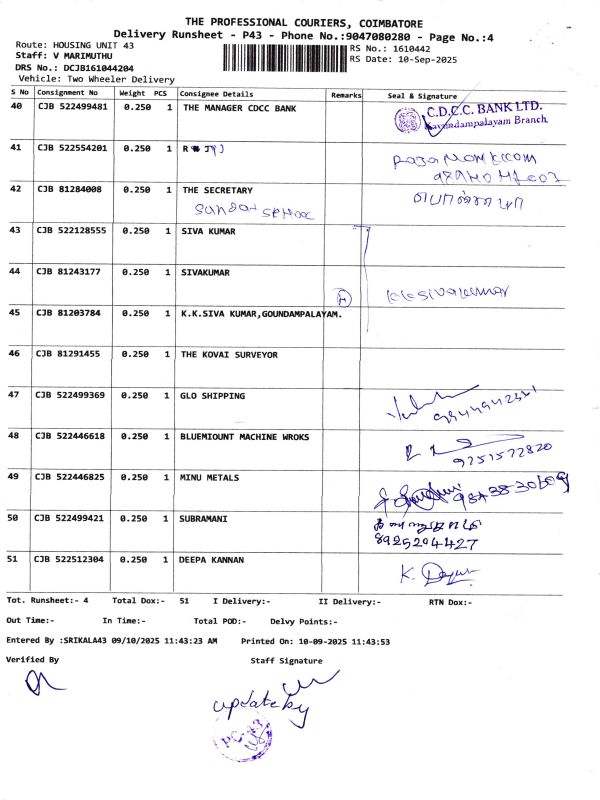 THE PROFESSIONAL COURIERS, COIMBATORE
Delivery Runsheet - P43 - Phone No.:9047080280 - Page No.:4
Route: HOUSING UNIT 43
RS No.: 1610442
Staff: V MARIMUTHU
RS Date: 10-Sep-2025
DRS No.: DCJB161044204
Vehicle: Two Wheeler Delivery
S No Consignment No Weight PCS Consignee Details Remarks Seal & Signature
40 CJB 522499481 0.250 1 THE MANAGER CDCC BANK C.D.C.C. BANK LTD.
Kavundampalayam Branch.
41 CJB 522554201 0.250 1 R
42 CJB 81284008 0.250 1 THE SECRETARY
43 CJB 522128555 0.250 1 SIVA KUMAR
44 CJB 81243177 0.250 1 SIVAKUMAR K.K.Sivakumar
45 CJB 81203784 0.250 1 K.K.SIVA KUMAR,GOUNDAMPALAYAM.
46 CJB 81291455 0.250 1 THE KOVAI SURVEYOR
47 CJB 522499369 0.250 1 GLO SHIPPING
48 CJB 522446618 0.250 1 BLUEMIOUNT MACHINE WROKS
9751572820
49 CJB 522446825 0.250 1 MINU METALS
50 CJB 522499421 0.250 1 SUBRAMANI
8925204427
51 CJB 522512304 0.250 1 DEEPA KANNAN K.
Tot. Runsheet:- 4 Total Dox:- 51 I Delivery:- II Delivery:- RTN Dox:-
Out Time:- In Time:- Total POD:- Delvy Points:-
Entered By :SRIKALA43 09/10/2025 11:43:23 AM Printed On: 10-09-2025 11:43:53
Verified By Staff Signature
update by
PC-43